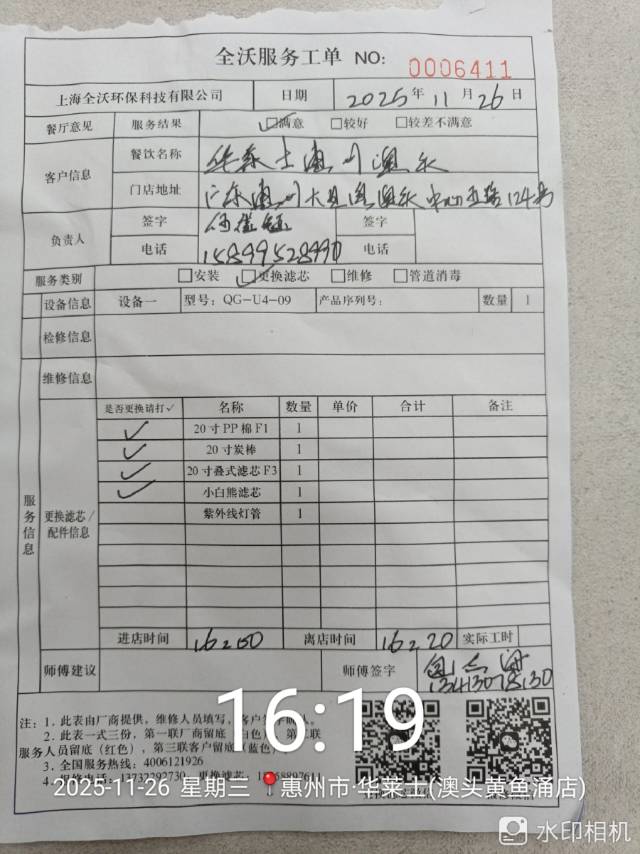 全沃服务工单 NO: 0006411
上海全沃环保科技有限公司 日期 2025年11月26日
餐厅意见 服务结果 ☑满意 □较好 □较差不满意
客户信息 餐饮名称 华莱士澳
门店地址 广东 大 澳 中心 124号
负责人 签字 签字
电话 15899528990 电话
服务类别 □安装 ☑更换滤芯 □维修 □管道消毒
设备信息 设备一 型号: QG-U4-09 产品序列号: 数量 1
检修信息
维修信息
服务信息 更换滤芯/配件信息
是否更换请打✓ 名称 数量 单价 合计 备注
✓ 20寸PP棉F1 1
✓ 20寸炭棒 1
✓ 20寸叠式滤芯F3 1
✓ 小白熊滤芯 1
紫外线灯管 1
进店时间 16:00 离店时间 16:20 实际工时
师傅建议 师傅签字
注: 1、此表由厂商提供, 维修人员填写, 客户
2、此表一式三份, 第一联厂商留底
服务人员留底(红色), 第三联客户留底(蓝色)
3、全国服务热线: 4006121926
4、 电话: 13732292730 更换滤芯:
16:19
2025-11-26 星期三 惠州市·华莱士(澳头黄鱼涌店)
水印相机